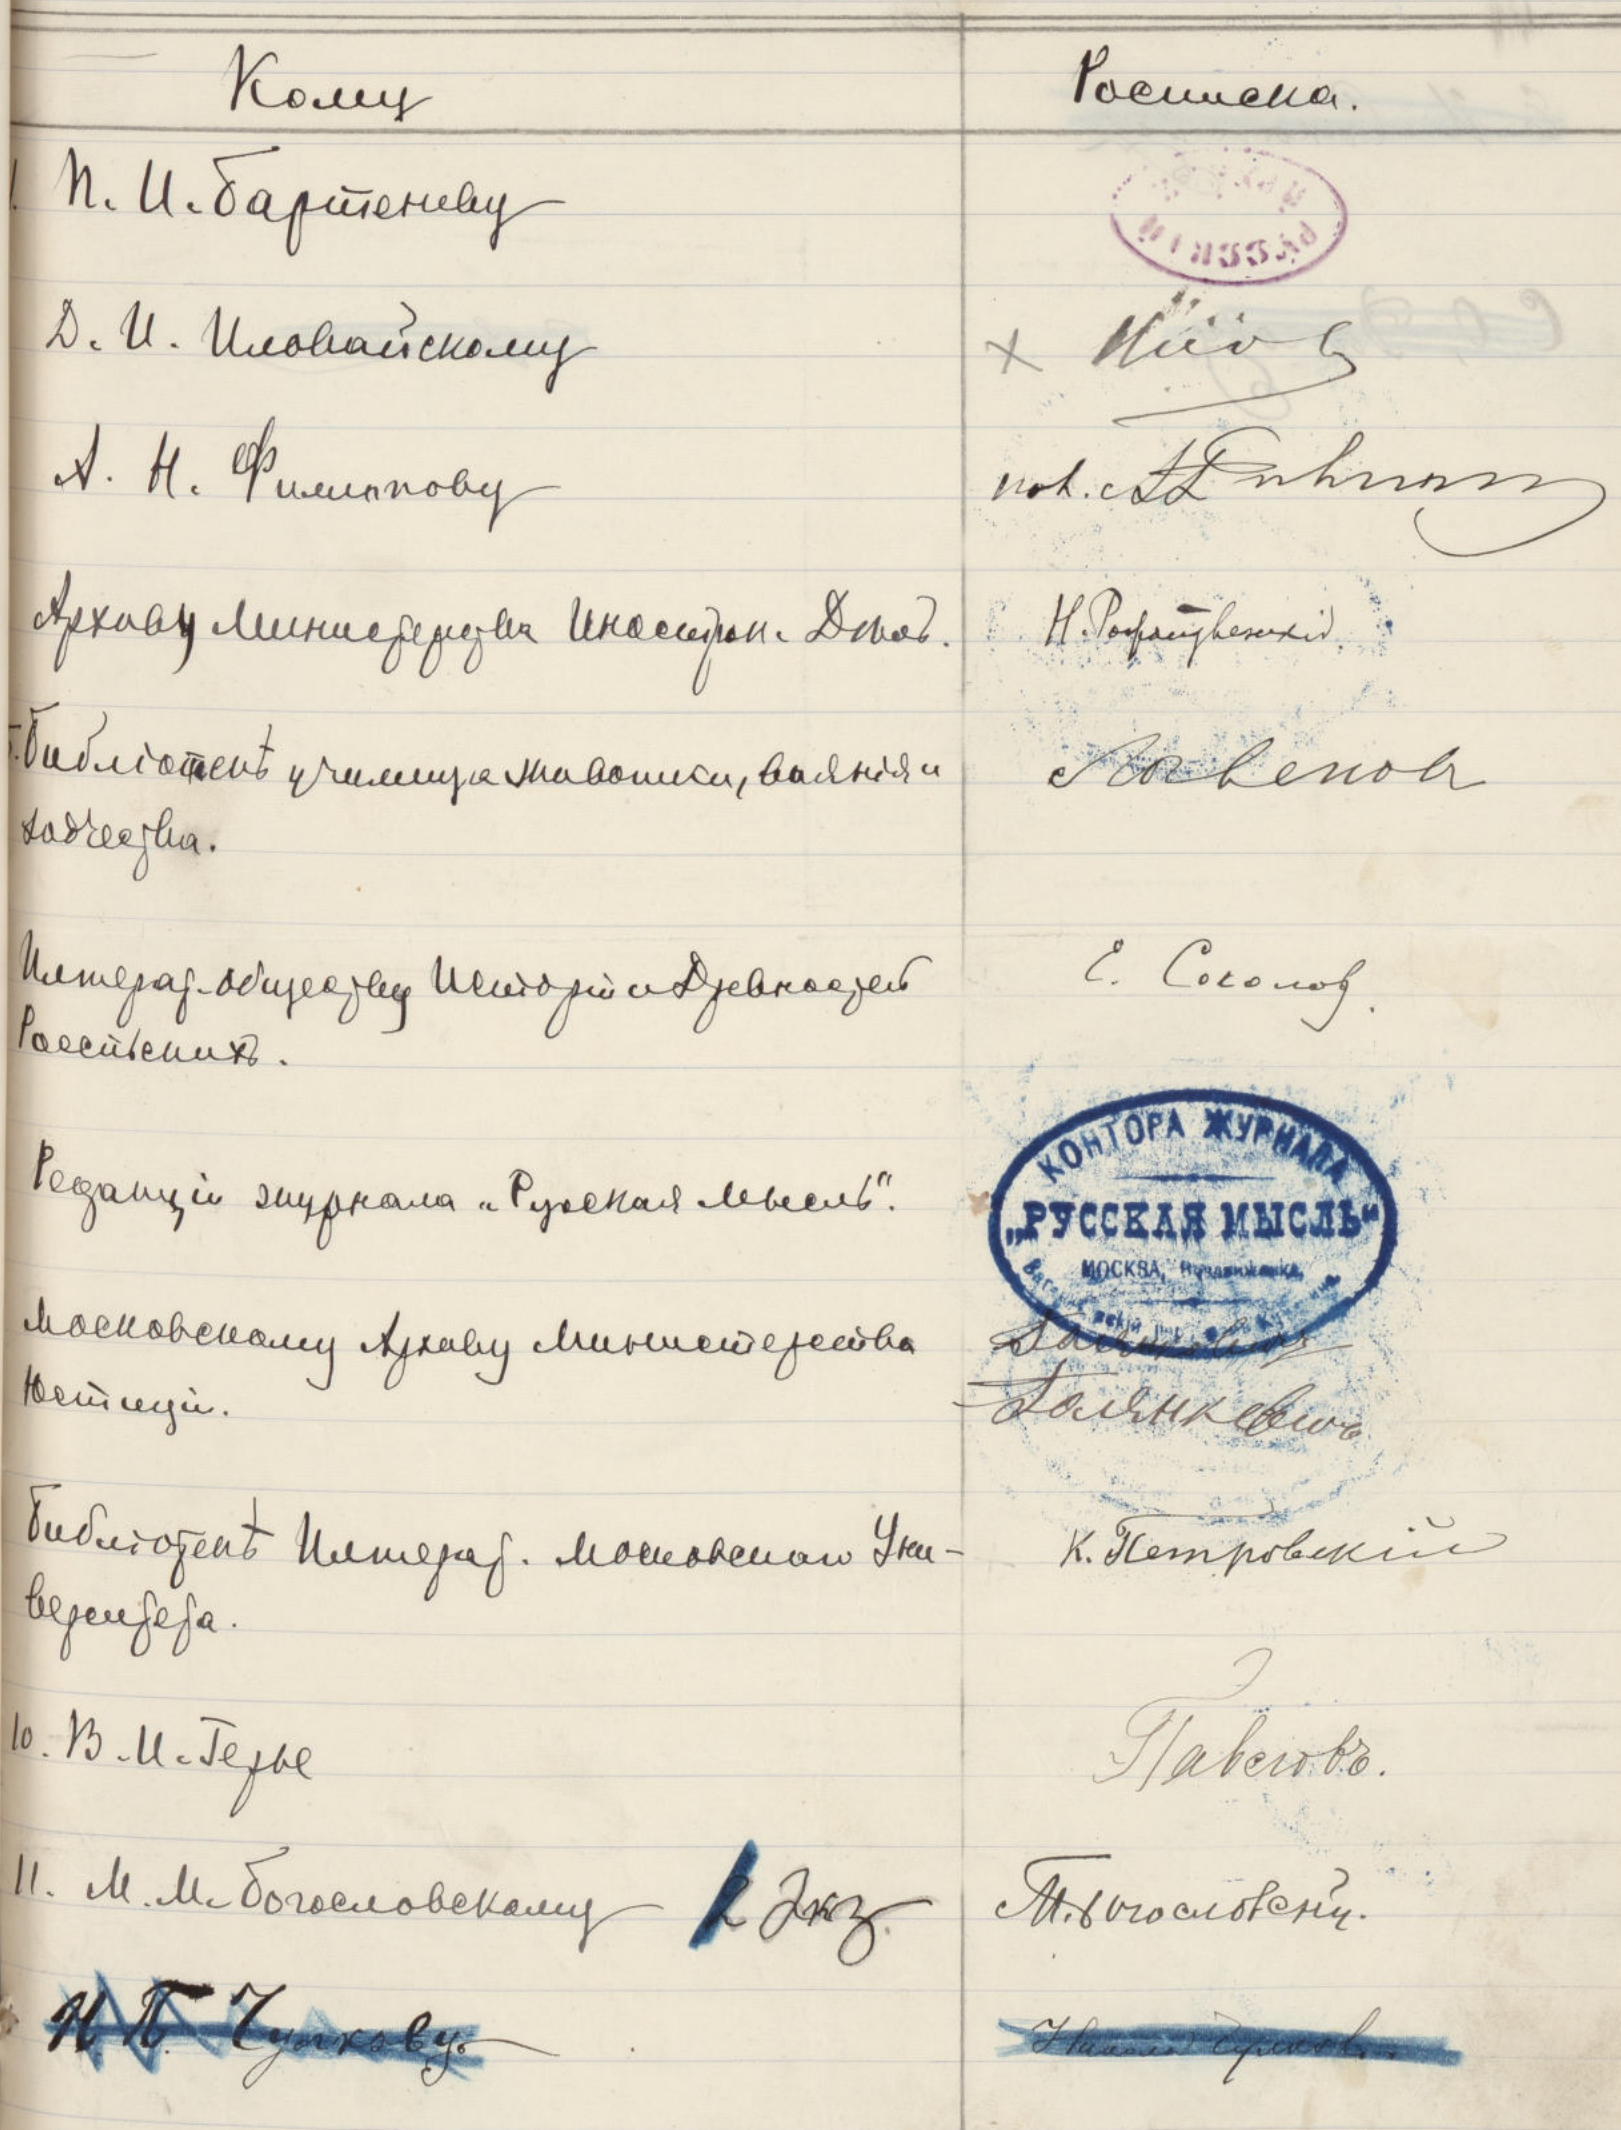 Кому
Росписка.
1. П. И. Бартеневу
РУССКІЙ
Д. И. Иловайскому
А. Н. Филиппову
Архиву Министерства Иностран. Дѣлъ.
Н. Рождественскій
5. Библіотекѣ училища живописи, ваянія и
зодчества.
Императ. обществу Исторіи и Древностей
Россійскихъ.
Е. Соколов.
Редакціи журнала „Русская Мысль“.
КОНТОРА ЖУРНАЛА
„РУССКАЯ МЫСЛЬ“
МОСКВА, Воздвиженка,
Московскому Архиву Министерства
Юстиціи.
Голянкевичъ
Библіотекѣ Императ. Московскаго Уни-
верситета.
К. Петровскій
10. В. И. Герье
Павловъ.
11. М. М. Богословскому 2 экз.
М. Богословскій.
Н П. Чулкову.